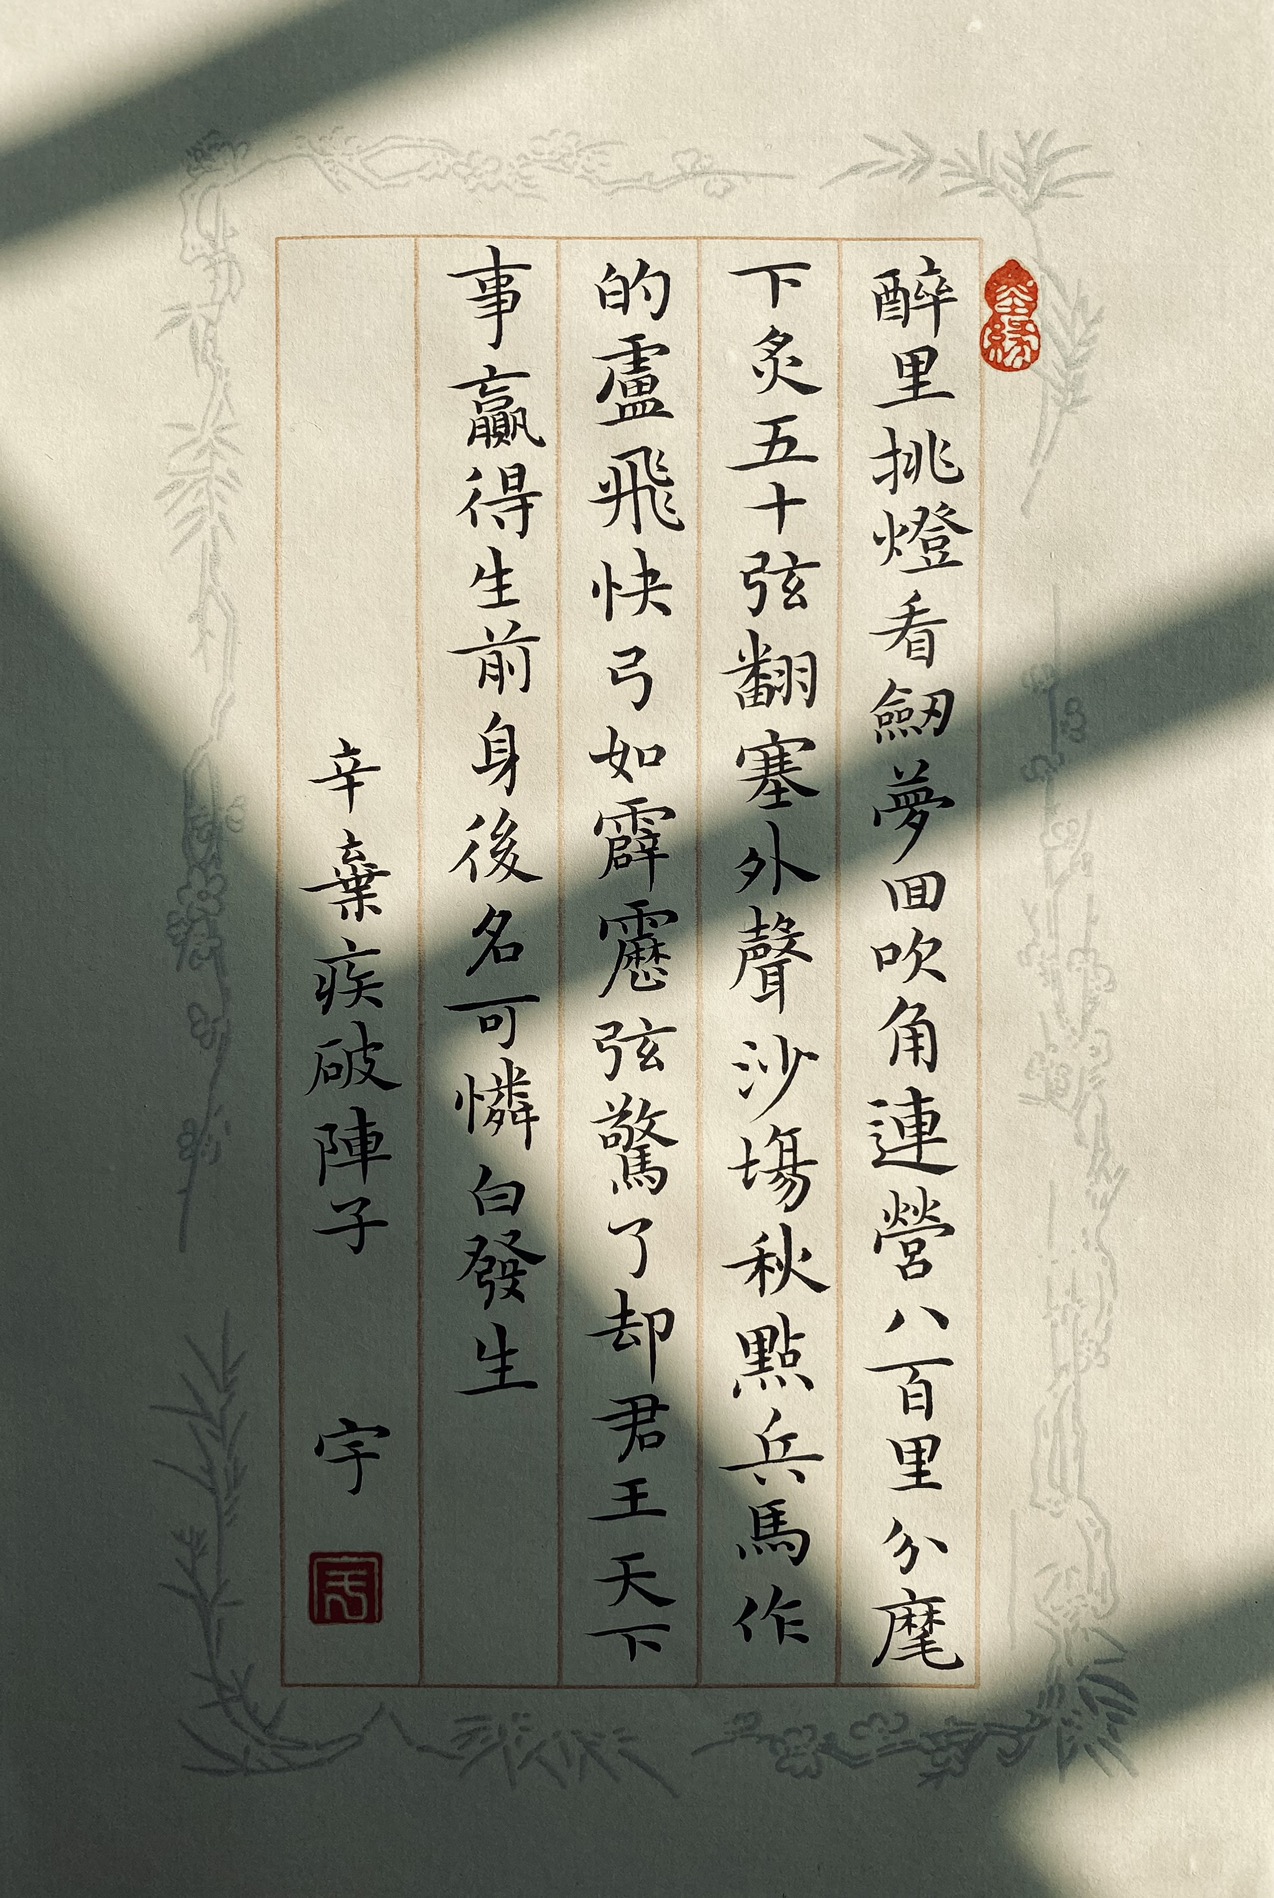 醉里挑燈看劒夢回吹角連營八百里分麾
下炙五十弦翻塞外聲沙場秋點兵馬作
的盧飛快弓如霹靂弦驚了却君王天下
事贏得生前身後名可憐白發生
辛棄疾破陣子 宇